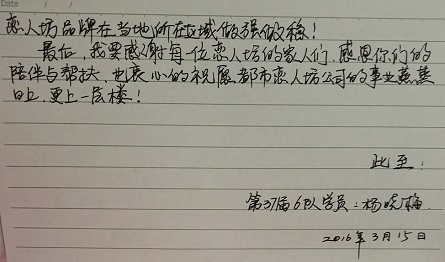 Date / /
恋人坊品牌在当地所在区域做强做稳!
最后,我要感谢每一位恋人坊的家人们,感恩你们的
陪伴与帮扶,也衷心的祝愿都市恋人坊公司的事业蒸蒸
日上,更上一层楼!
此至!
第37届6队学员:杨晓梅
2016年3月15日